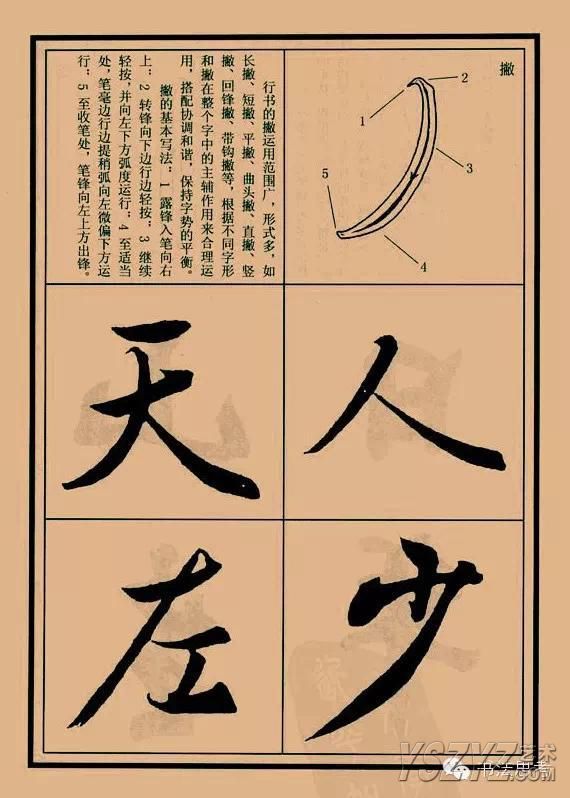 撇
1
2
3
4
5
行书的撇运用范围广，形式多，如
长撇、短撇、平撇、曲头撇、直撇、竖
撇、回锋撇、带钩撇等，根据不同字形
和撇在整个字中的主辅作用来合理运
用，搭配协调和谐，保持字势的平衡。
撇的基本写法：1 露锋入笔向右
上；2 转锋向下边行边轻按；3 继续
轻按，并向左下方弧度运行；4 至适当
处，笔毫边行边提稍弧向左微偏下方运
行；5 至收笔处，笔锋向左上方出锋。
人
天
少
左
YSZYZ艺术
书法思考